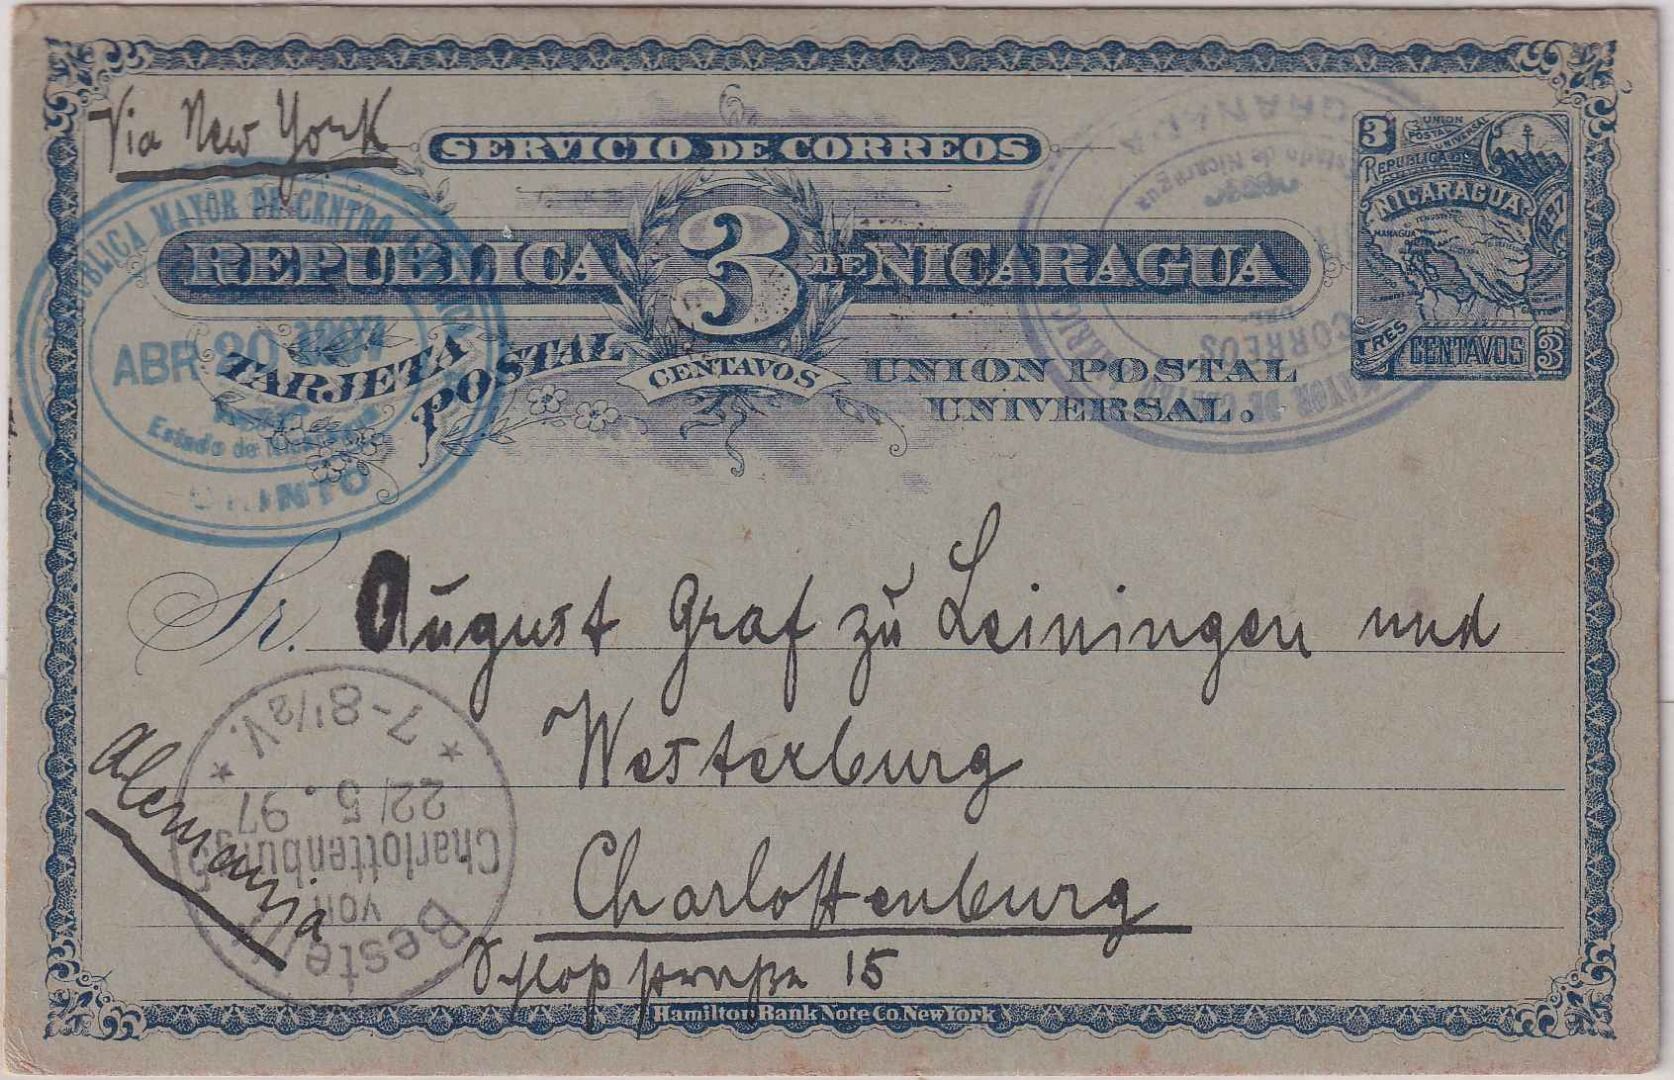 Via New York
SERVICIO DE CORREOS
REPUBLICA DE NICARAGUA
3
CENTAVOS
TARJETA POSTAL
UNION POSTAL
UNIVERSAL.
3
UNION
POSTAL UNIVERSAL
REPUBLICA DE
NICARAGUA
1897
MANAGUA
TRES
CENTAVOS 3
REPUBLICA MAYOR DE CENTRO
ABR 20 1897
Estado de Nicaragua
CORINTO
GRANADA
Estado de Nicaragua
CORREOS
MAYOR DE
Sr. August Graf zu Leiningen und
Westerburg
Charlottenburg
Schloßstraße 15
Alemania
Bestellt
von
Charlottenburg 5
22/5.97
* 7-8½V. *
Hamilton Bank Note Co. New York